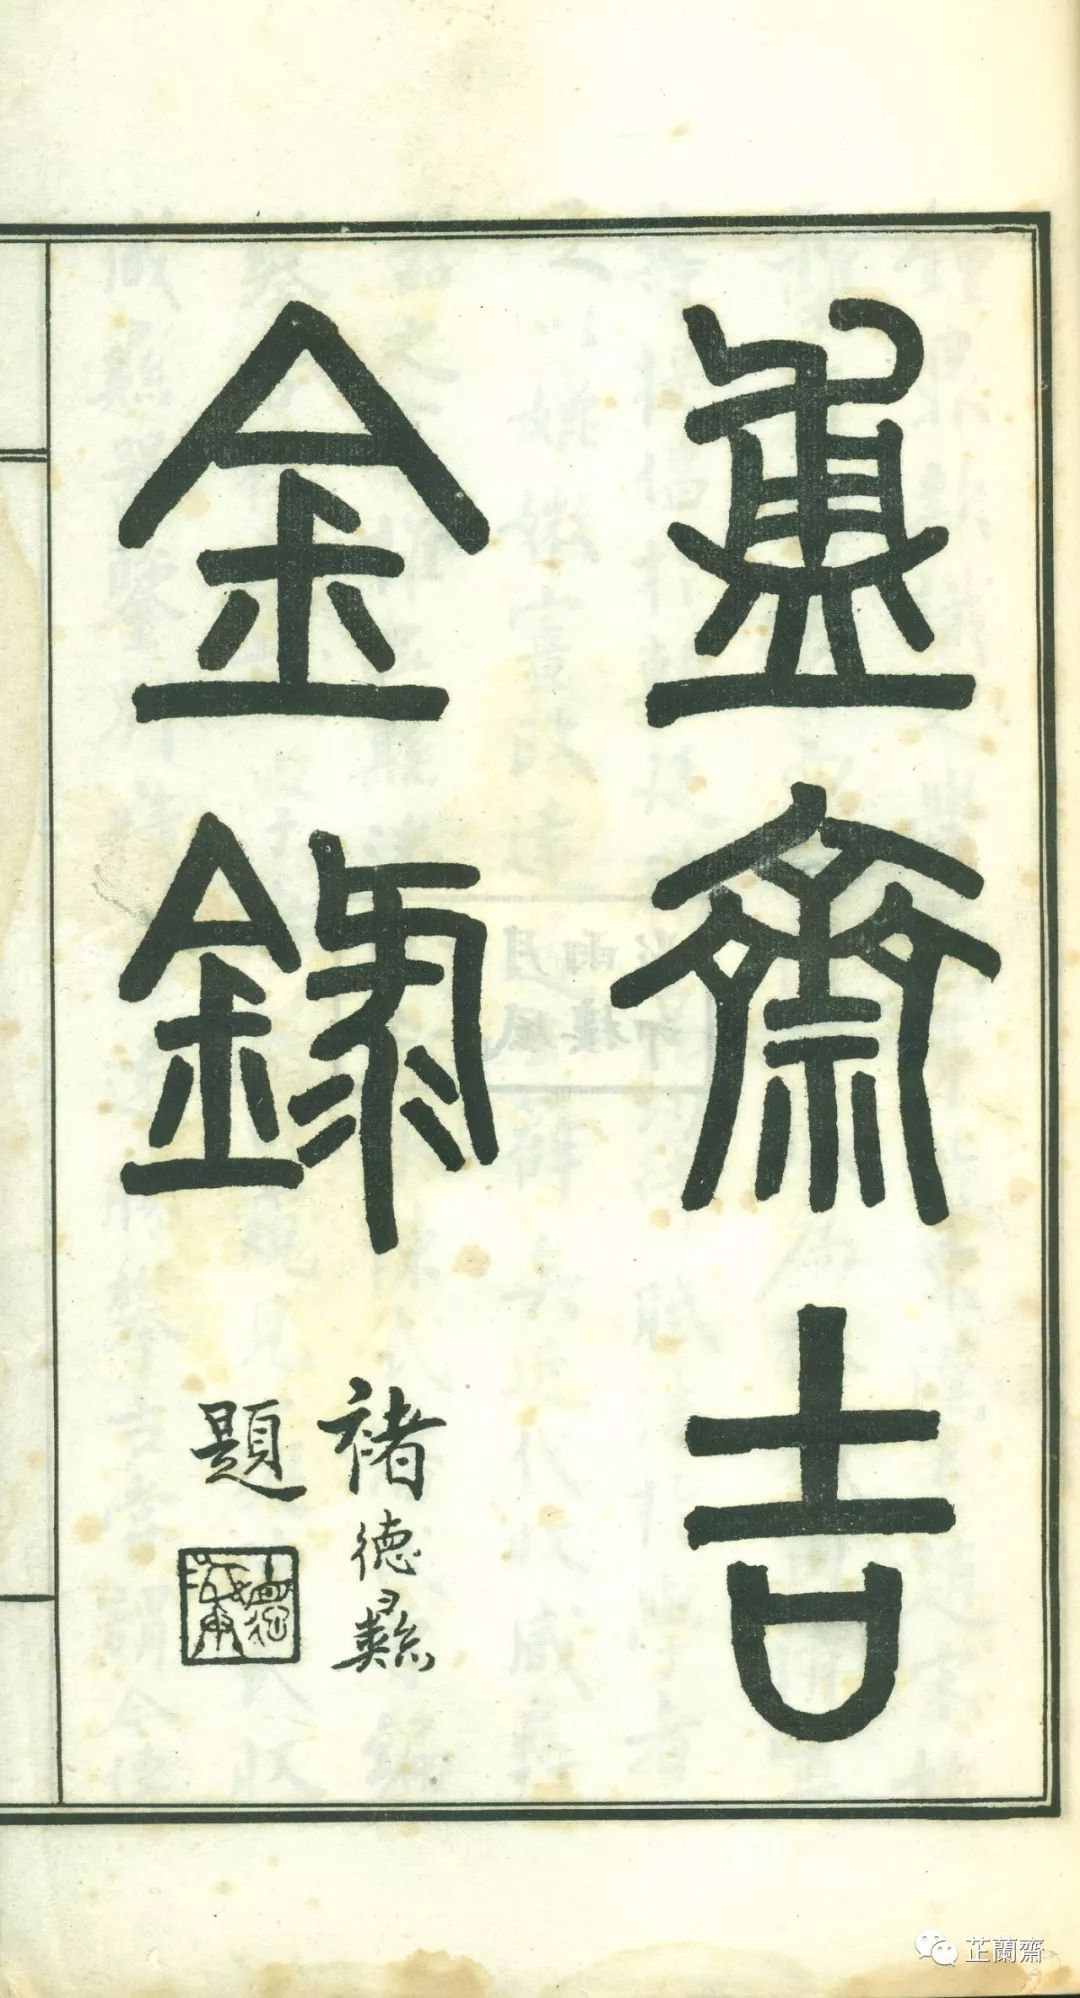 簠齋吉
金錄
褚德彝
題
芷蘭齋